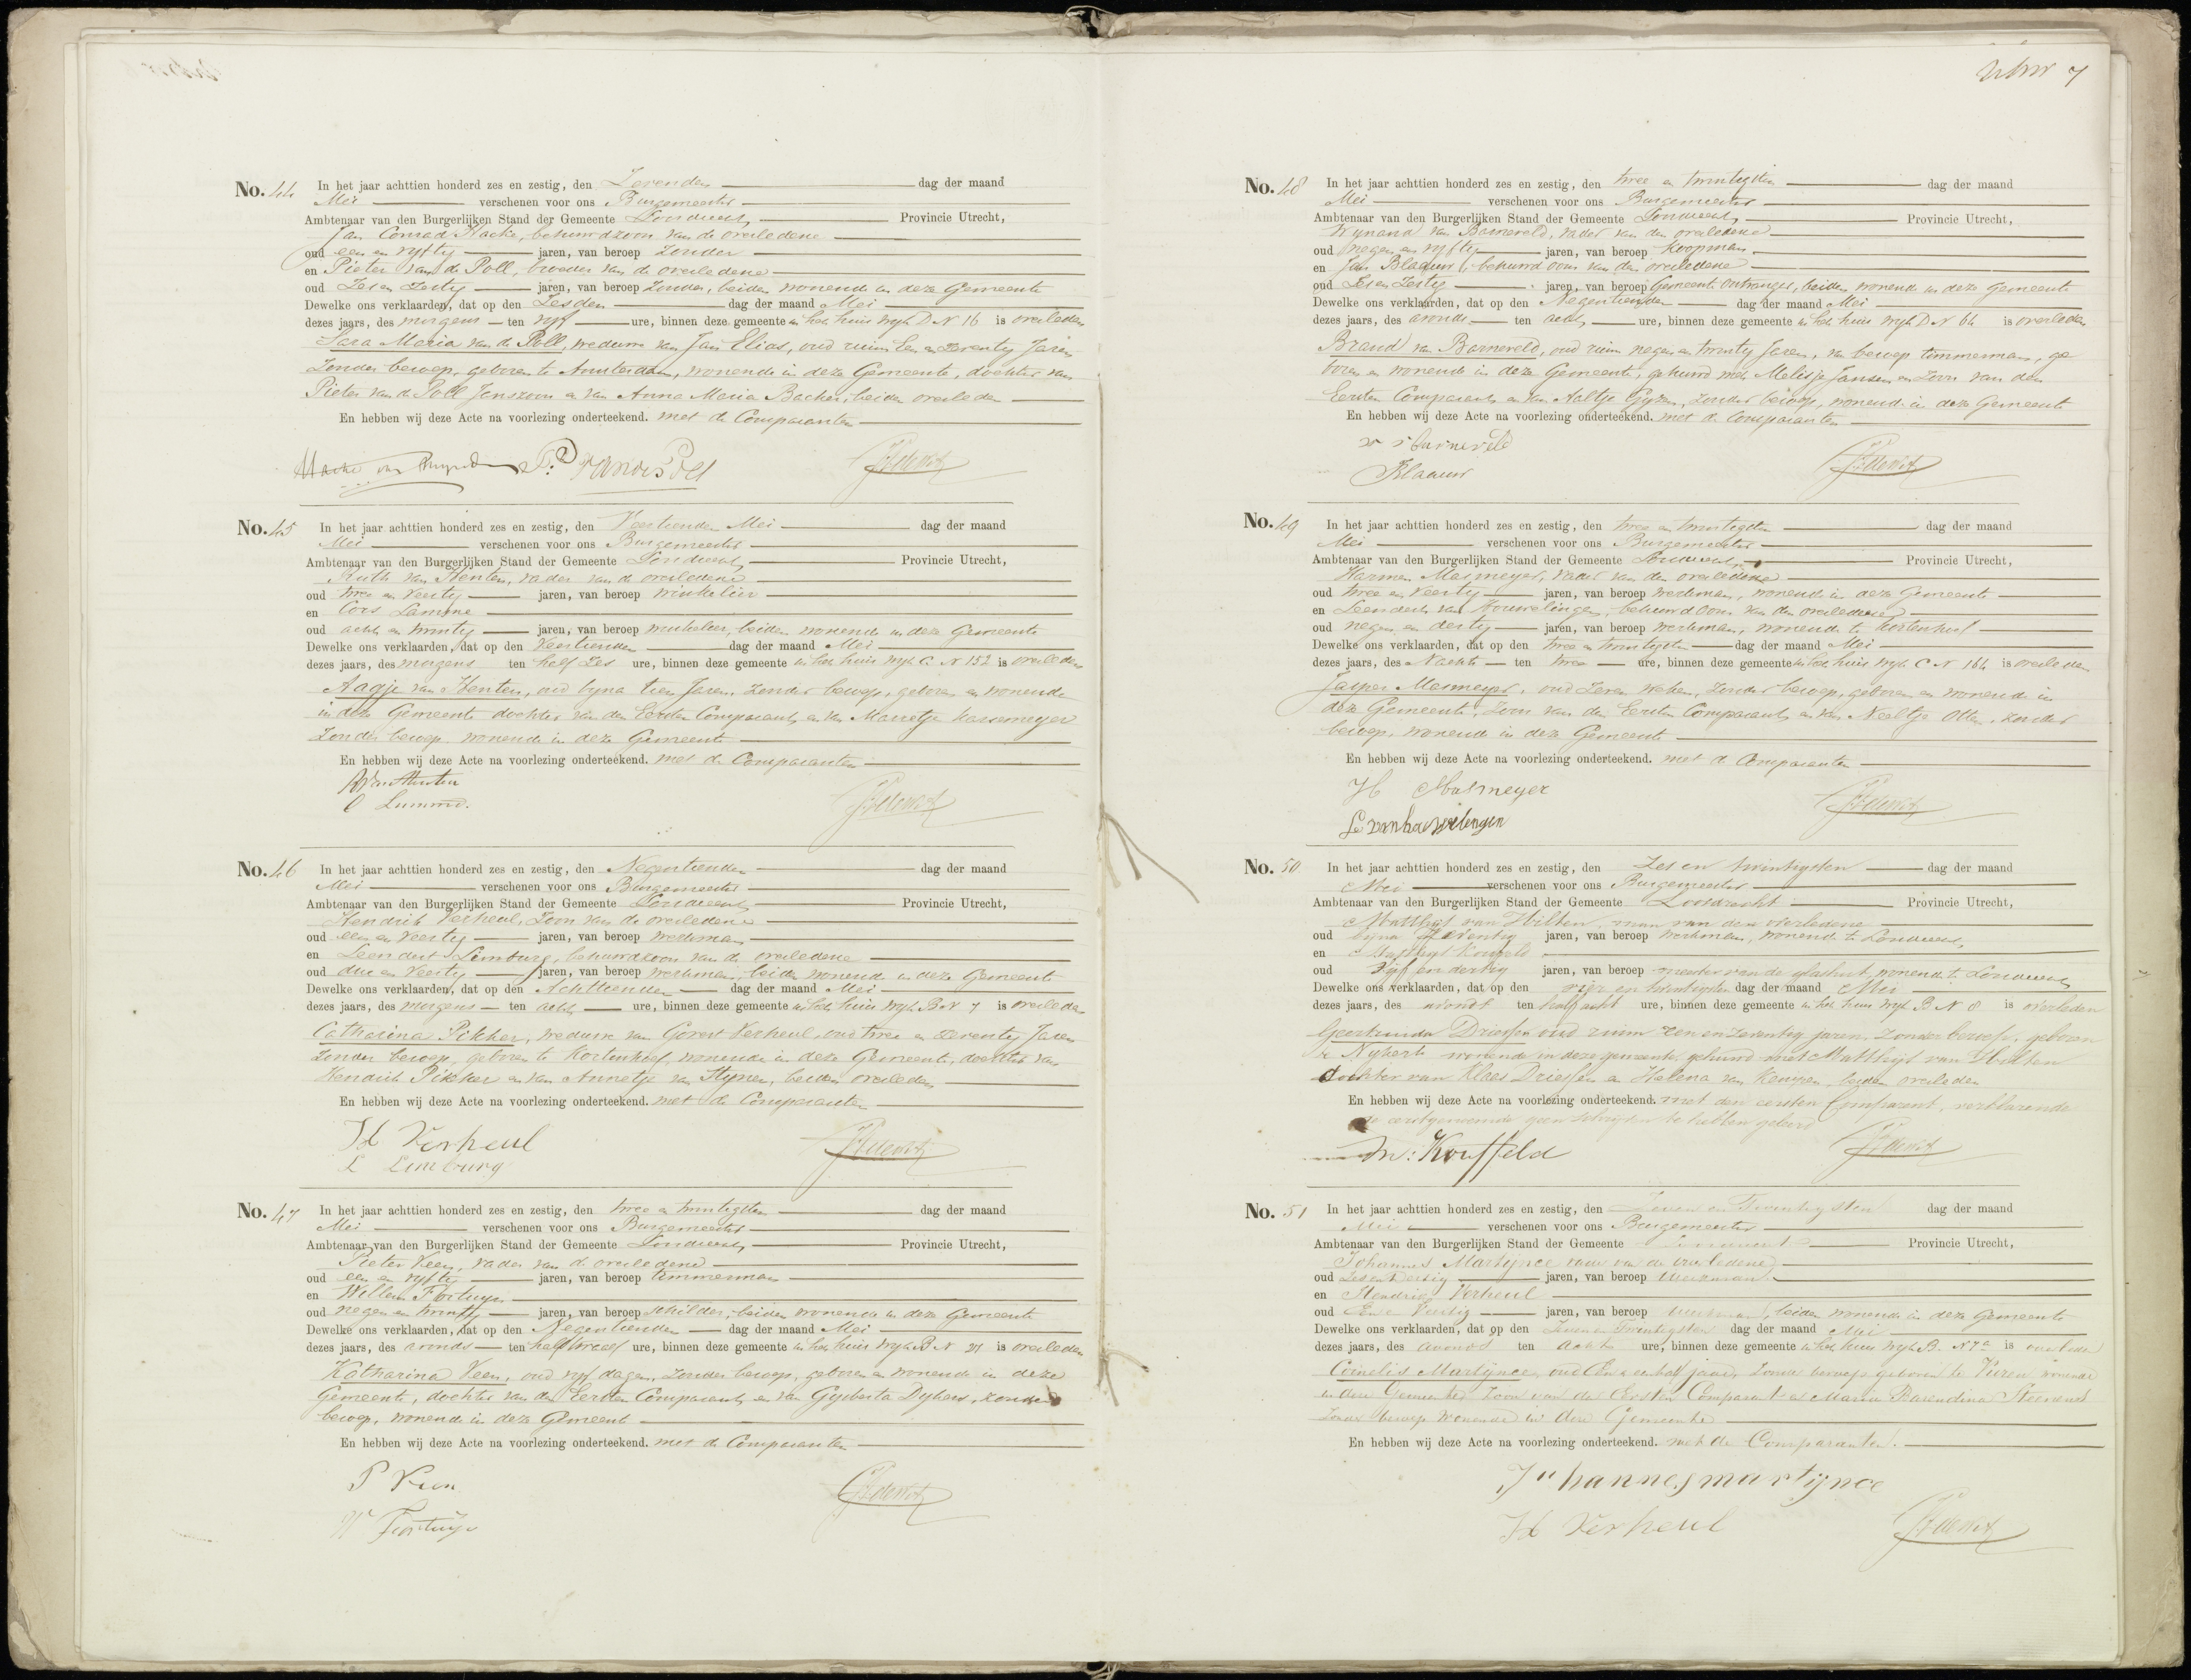 No. 44 In het jaar achttien honderd zes en zestig, den Zevenden dag der maand
Mei verschenen voor ons Burgemeester
Ambtenaar van den Burgerlijken Stand der Gemeente Loosdrecht Provincie Utrecht,
Jan Conrad Hacke, behuwdzoon van de overledene
oud een en vyftig jaren, van beroep zonder
en Pieter van de Poll, broeder van de overledene
oud Zes en Zestig jaren, van beroep zonder, beiden wonende in deze Gemeente
Dewelke ons verklaarden, dat op den Zesden dag der maand Mei
dezes jaars, des morgens ten vyf ure, binnen deze gemeente in het huis wyk D N 16 is overleden
Sara Maria van de Poll, weduwe van Jan Elias, oud ruim Een en Zeventig Jaren,
Zonder beroep, geboren te Amsterdam, wonende in deze Gemeente, dochter van
Pieter van de Poll Janszoon en van Anna Maria Backer, beiden overleden
En hebben wij deze Acte na voorlezing onderteekend. met de Comparanten
No. 45 In het jaar achttien honderd zes en zestig, den Veertienden Mei dag der maand
Mei verschenen voor ons Burgemeester
Ambtenaar van den Burgerlijken Stand der Gemeente Loosdrecht Provincie Utrecht,
Ruth van Henten, vader van de overledene
oud twee en Veertig jaren, van beroep winkelier
en Cors Lamme
oud acht en twintig jaren, van beroep winkelier, beiden wonende in deze Gemeente
Dewelke ons verklaarden, dat op den Veertienden dag der maand Mei
dezes jaars, des morgens ten half Zes ure, binnen deze gemeente in het huis wyk C N 152 is overleden
Aagje van Henten, oud byna tien Jaren, Zonder beroep, geboren en wonende
in deze Gemeente dochter van den Eersten Comparant en van Marretje Karsemeyer
Zonder beroep, wonende in deze Gemeente
En hebben wij deze Acte na voorlezing onderteekend. met de Comparanten
R van Henten
C Lamme.
No. 46 In het jaar achttien honderd zes en zestig, den Negentienden dag der maand
Mei verschenen voor ons Burgemeester
Ambtenaar van den Burgerlijken Stand der Gemeente Loosdrecht Provincie Utrecht,
Hendrik Verheul, Zoon van de overledene
oud een en Veertig jaren, van beroep werkman
en Leendert Limburg, behuwdzoon van de overledene
oud drie en Veertig jaren, van beroep werkman, beide wonende in deze Gemeente
Dewelke ons verklaarden, dat op den Achttienden dag der maand Mei
dezes jaars, des morgens ten acht ure, binnen deze gemeente in het huis wyk B N 7 is overleden
Catharina Pikker, weduwe van Govert Verheul, oud twee en Zeventig Jaren
Zonder beroep, geboren te Kortenhoef, wonende in deze Gemeente, dochter van
Hendrik Pikker en van Annetje van Stynen, beiden overleden
En hebben wij deze Acte na voorlezing onderteekend. met de Comparanten
H Verheul
L Limburg
No. 47 In het jaar achttien honderd zes en zestig, den twee en twintigsten dag der maand
Mei verschenen voor ons Burgemeester
Ambtenaar van den Burgerlijken Stand der Gemeente Loosdrecht Provincie Utrecht,
Pieter Veen, vader van de overledene
oud een en vyftig jaren, van beroep timmerman
en Willem Fortuyn
oud negen en twintig jaren, van beroep schilder, beiden wonende in deze Gemeente
Dewelke ons verklaarden, dat op den Negentienden dag der maand Mei
dezes jaars, des avonds ten half twaalf ure, binnen deze gemeente in het huis wyk B N 21 is overleden
Katharina Veen, oud vyf dagen, Zonder beroep, geboren en wonende in deze
Gemeente, dochter van den Eersten Comparant en van Gysberta Dykers, zonder
beroep, wonende in deze Gemeente
En hebben wij deze Acte na voorlezing onderteekend. met de Comparanten
P Veen
W Fortuyn
7
No. 48 In het jaar achttien honderd zes en zestig, den twee en twintigsten dag der maand
Mei verschenen voor ons Burgemeester
Ambtenaar van den Burgerlijken Stand der Gemeente Loosdrecht Provincie Utrecht,
Wynand van Barneveld, vader van den overledene
oud negen en vyftig jaren, van beroep koopman
en Jan Blaauw, behuwd oom van den overledene
oud Zes en Zestig jaren, van beroep Gemeente Ontvanger, beiden wonende in deze Gemeente
Dewelke ons verklaarden, dat op den Negentienden dag der maand Mei
dezes jaars, des avonds ten acht ure, binnen deze gemeente in het huis wyk D N 64 is overleden
Brand van Barneveld, oud ruim negen en twintig Jaren, van beroep timmerman, ge
boren en wonende in deze Gemeente, gehuwd met Melisje Jansen en Zoon van den
Eersten Comparant en van Aaltje Gyzen, zonder beroep, wonende in deze Gemeente
En hebben wij deze Acte na voorlezing onderteekend. met de Comparanten
W v Barneveld
J Blaauw
No. 49 In het jaar achttien honderd zes en zestig, den twee en twintigsten dag der maand
Mei verschenen voor ons Burgemeester
Ambtenaar van den Burgerlijken Stand der Gemeente Loosdrecht Provincie Utrecht,
Harmen Masmeyer, vader van den overledene
oud twee en Veertig jaren, van beroep werkman, wonende in deze Gemeente
en Leendert van Houwelingen, behuwd Oom van den overledene
oud negen en dertig jaren, van beroep werkman, wonende te Kortenhoef
Dewelke ons verklaarden, dat op den twee en twintigsten dag der maand Mei
dezes jaars, des Nachts ten twee ure, binnen deze gemeente in het huis wyk C N 164 is overleden
Jasper Masmeyer, oud Zeven weken, Zonder beroep, geboren en wonende in
deze Gemeente, Zoon van den Eersten Comparant en van Neeltje Otten, zonder
beroep, wonende in deze Gemeente
En hebben wij deze Acte na voorlezing onderteekend. met de Comparanten
H Masmeyer
L van houwelingen
No. 50 In het jaar achttien honderd zes en zestig, den Zes en twintigsten dag der maand
Mei verschenen voor ons Burgemeester
Ambtenaar van den Burgerlijken Stand der Gemeente Loosdrecht Provincie Utrecht,
Matthijs van Hilten, man van den overledene
oud bijna Zeventig jaren, van beroep werkman, wonende te Loosdrecht,
en Matthijs
oud Vijf en dertig jaren, van beroep meester van de wonende te Loosdrecht
Dewelke ons verklaarden, dat op den vier en twintigsten dag der maand Mei
dezes jaars, des avonds ten half acht ure, binnen deze gemeente in het huis wyk B N 8 is overleden
Geertruida Driessen oud ruim een en zeventig jaren, Zonder beroep, geboren
te Nykerk wonende in deze gemeente, gehuwd met Matthijs van Hilten
dochter van Klaas Driessen en Helena van Kempen beiden overleden
En hebben wij deze Acte na voorlezing onderteekend. met den eersten Comparant, verklarende
de eerstgenoemde geen schrijven te hebben geleerd
No. 51 In het jaar achttien honderd zes en zestig, den Zeven en Twintigsten dag der maand
Mei verschenen voor ons Burgemeester
Ambtenaar van den Burgerlijken Stand der Gemeente Loosdrecht Provincie Utrecht,
Johannes Martijnce vader van de overledene
oud Zes en Dertig jaren, van beroep Werkman
en Hendrik Verheul
oud Een en Veertig jaren, van beroep Werkman, beiden wonende in deze Gemeente
Dewelke ons verklaarden, dat op den Zeven en Twintigsten dag der maand Mei
dezes jaars, des avonds ten acht ure, binnen deze gemeente in het huis wyk B. N 7 is overleden
Cornelis Martijnce, oud Een en een half jaar, Zonder beroep geboren te Vuren wonende
in deze Gemeente, Zoon van den Eersten Comparant en Maria Barendina Steenend
Zonder beroep wonende in deze Gemeente
En hebben wij deze Acte na voorlezing onderteekend. met de Comparanten.
Johannes martijnce
H Verheul